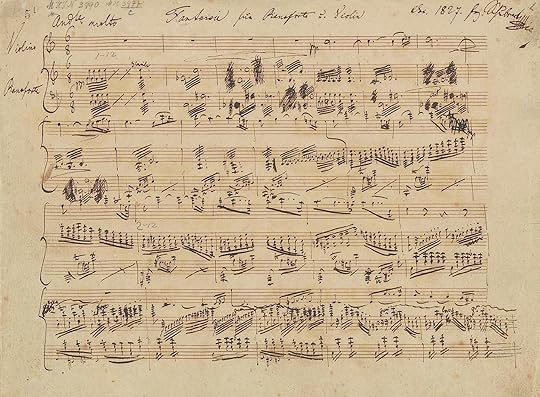 And^te molto Fantasie für Pianoforte u. Violin Dec. 1827. Frz Schubert
Violino
1-12
Pianoforte
2-12